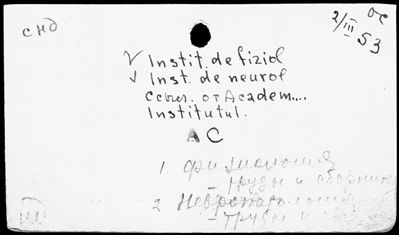 СНО
ОС
2/III 53
√ Instit. de fiziol
√ Inst. de neurol
Ссыл. от Academ....
Institutul.
АС
1. Физиология
– труды и сборник
2 Невропатология
– труды и